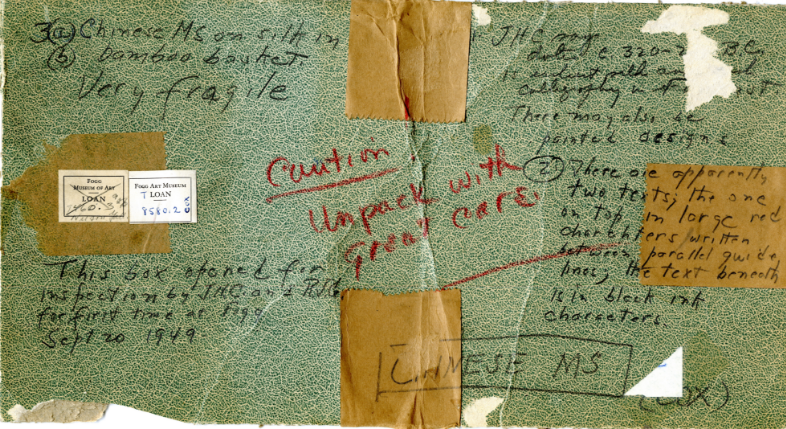 3(a) Chinese MS on silk in
(b) bamboo basket
Very fragile
FOGG
MUSEUM OF ART
LOAN
FOGG ART MUSEUM
T LOAN
8580.2
COX
This box opened for
inspection by JHC and
for first time at Fogg
Sept 20 1949
Caution:
Unpack with
great care.
JHC says
date c. 320-2 B.C.
calligraphy in
There may also be
painted designs
(2) There are apparently
two texts; the one
on top in large red
charachters written
between parallel guide
lines; the text beneath
is in black ink
characters.
CHINESE MS
(COX)